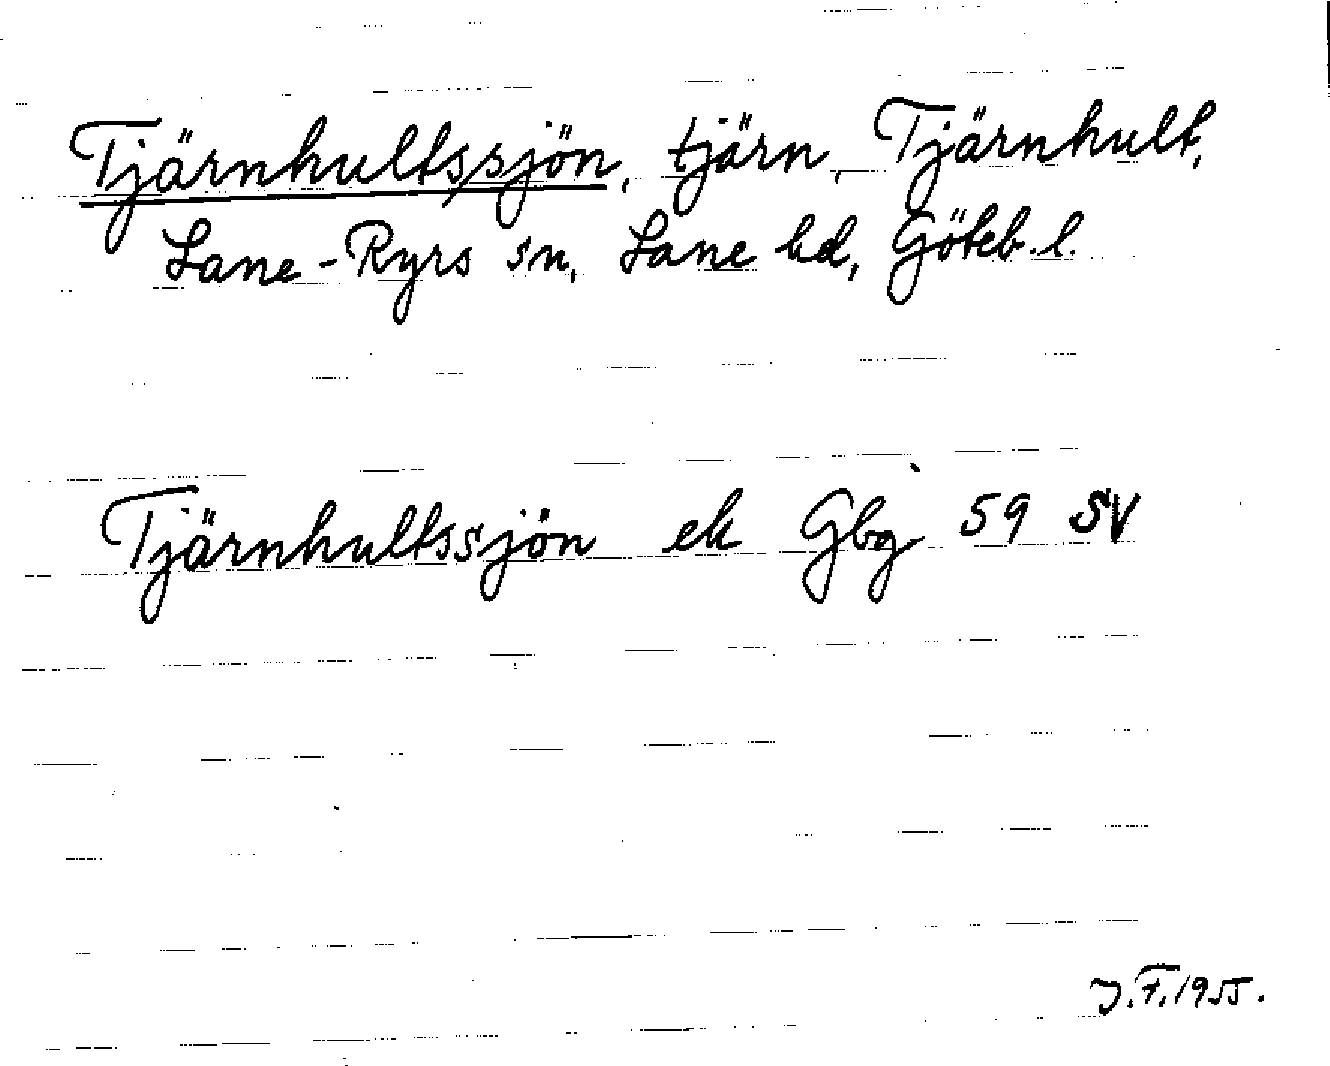 Tjärnhults/sjön, tjärn, Tjärnhult,
Lane-Ryrs sn, Lane hd, Göteb. l.
Tjärnhultssjön ek Gbg 59 SV
J.F. 1955.